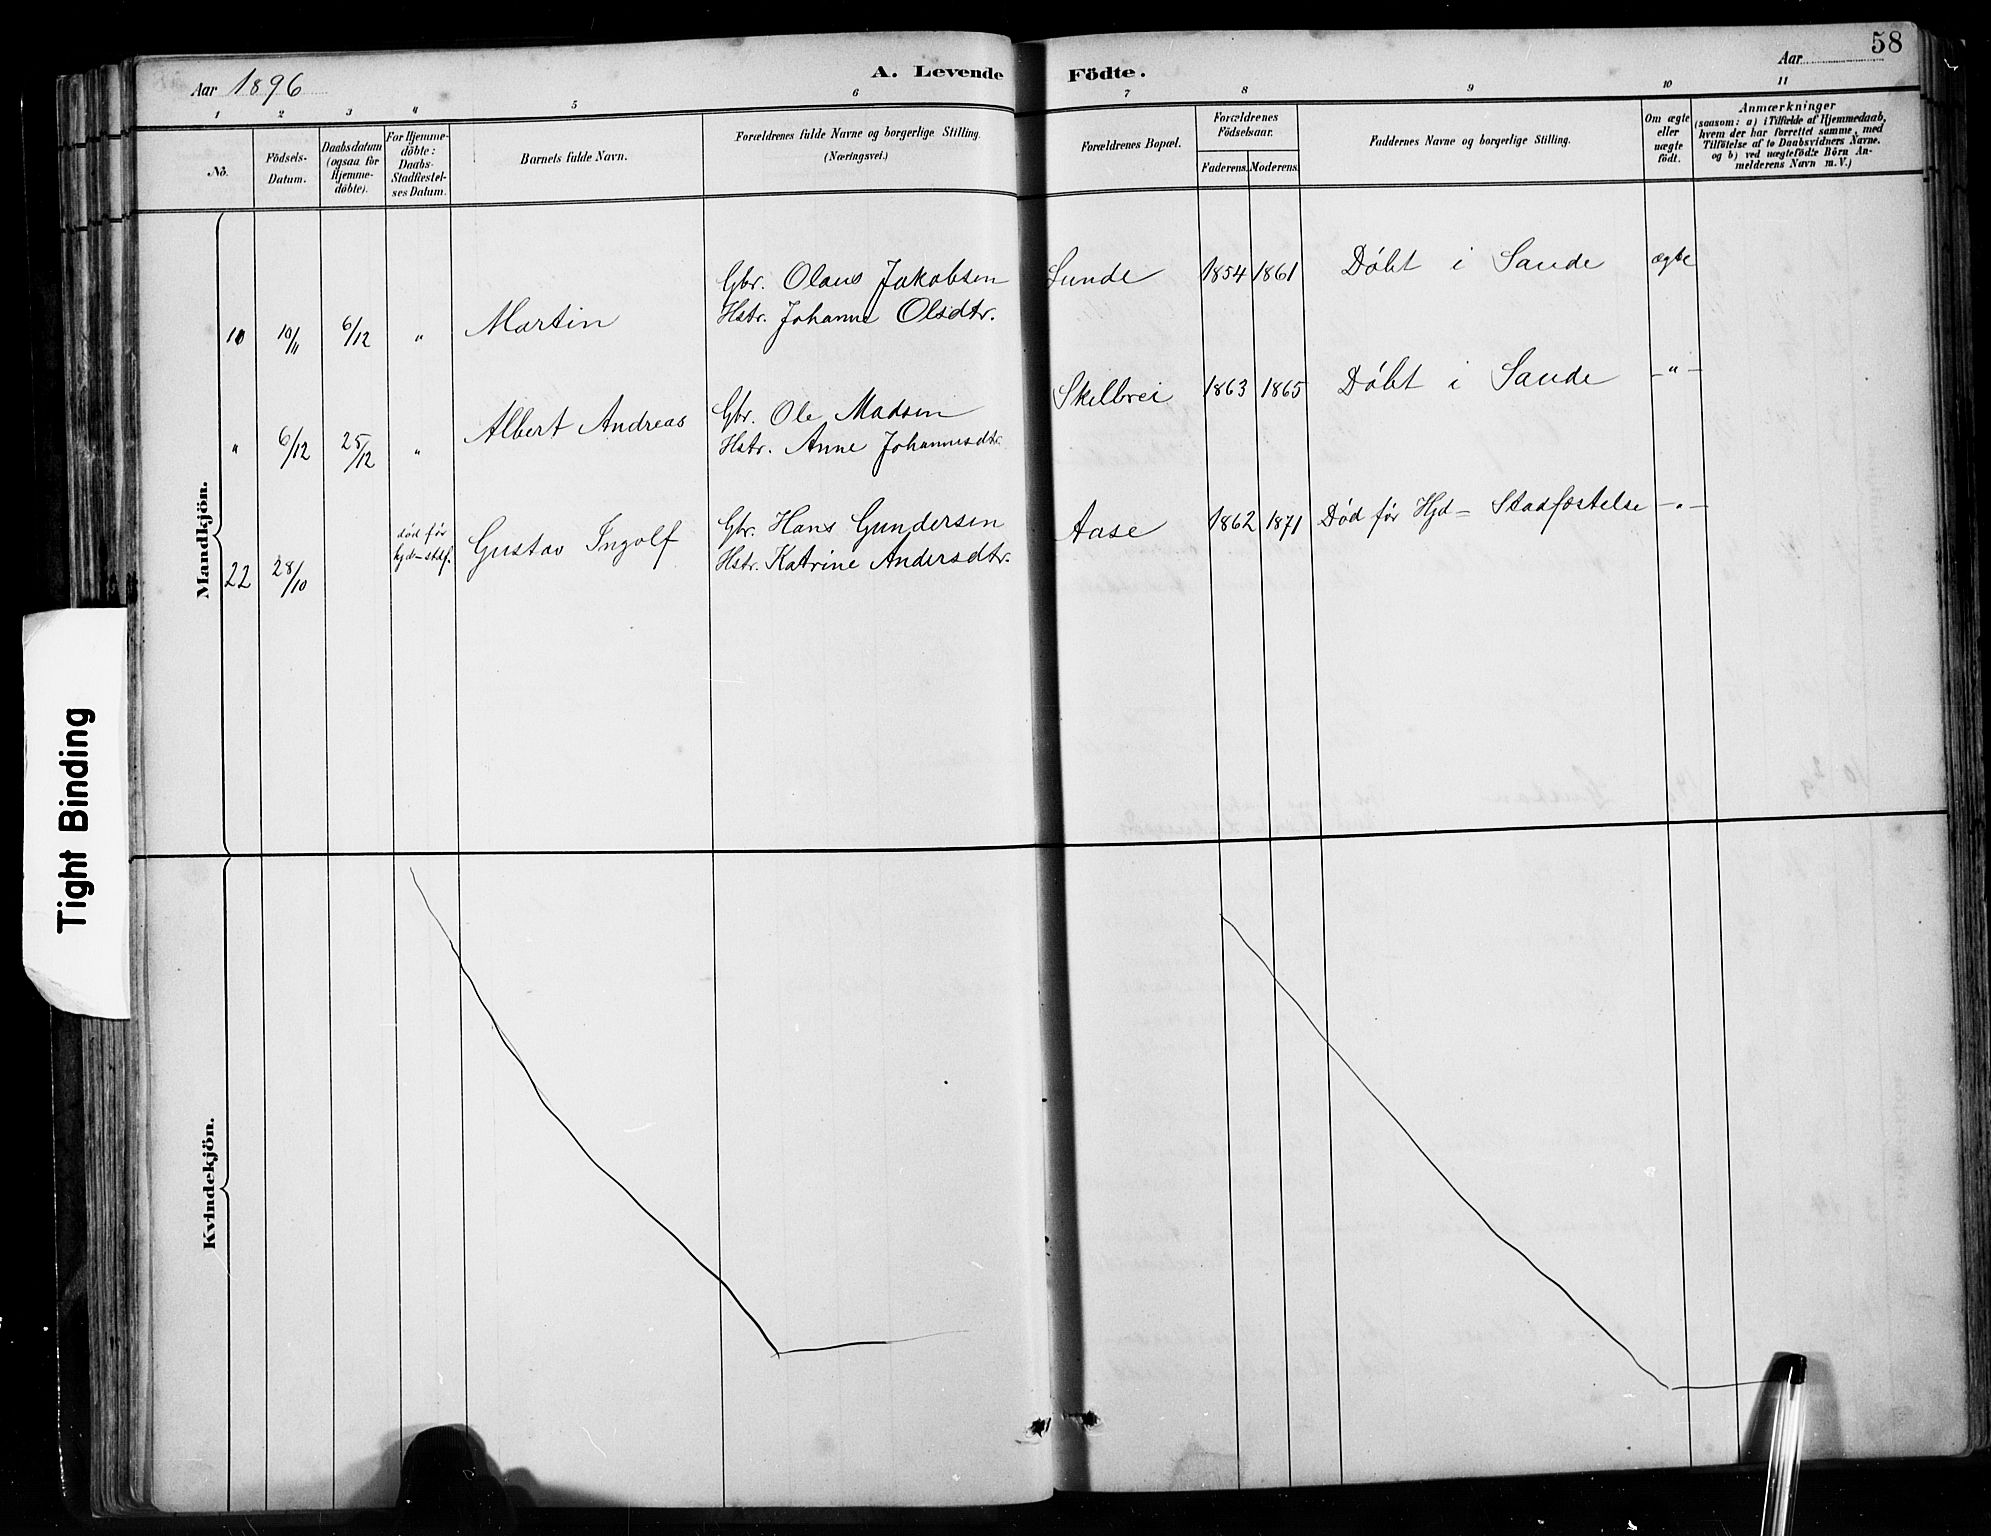 Aar 1896
A. Levende Födte.
Aar
58
1 2 3 4 5 6 7 8 9 10 11
No.
Födsels-
Datum.
Daabsdatum
(ogsaa for
Hjemme-
döbte).
For Hjemme-
döbte:
Daabs-
Stadfæstel-
ses Datum.
Barnets fulde Navn.
Forældrenes fulde Navne og borgerlige Stilling.
(Næringsvei.)
Forældrenes Bopæl.
Forældrenes
Födselsaar.
Faderens. Moderens.
Faddernes Navne og borgerlige Stilling.
Om ægte
eller
uægte
födt.
Anmærkninger
(saasom: a) i Tilfælde af Hjemmedaab,
hvem der har forrettet samme, med
Tilföielse af to Daabsvidners Navne.
og b) ved uægtefödte Börn An-
melderens Navn m. V.)
Mandkjön.
Gbr. Olaus Jakobsen Sunde 1854 1861 Døbt i Sande ægte
10 10/11 6/12 " Martin Hstr. Johanne Olsdtr.
Albert Andreas Gbr. Ole Madsen Skilbrei 1863 1865 Døbt i Sande -"-
" 6/12 25/12 " Hstr. Anne Johannesdtr.
død før Gustav Ingolf Gbr. Hans Gundersen Aase 1862 1871 Død før Hjd- Stadfæstelse -"-
hjd-stdf.
22 28/10 Hstr. Katrine Andersdtr.
Kvindekjön.
Tight Binding